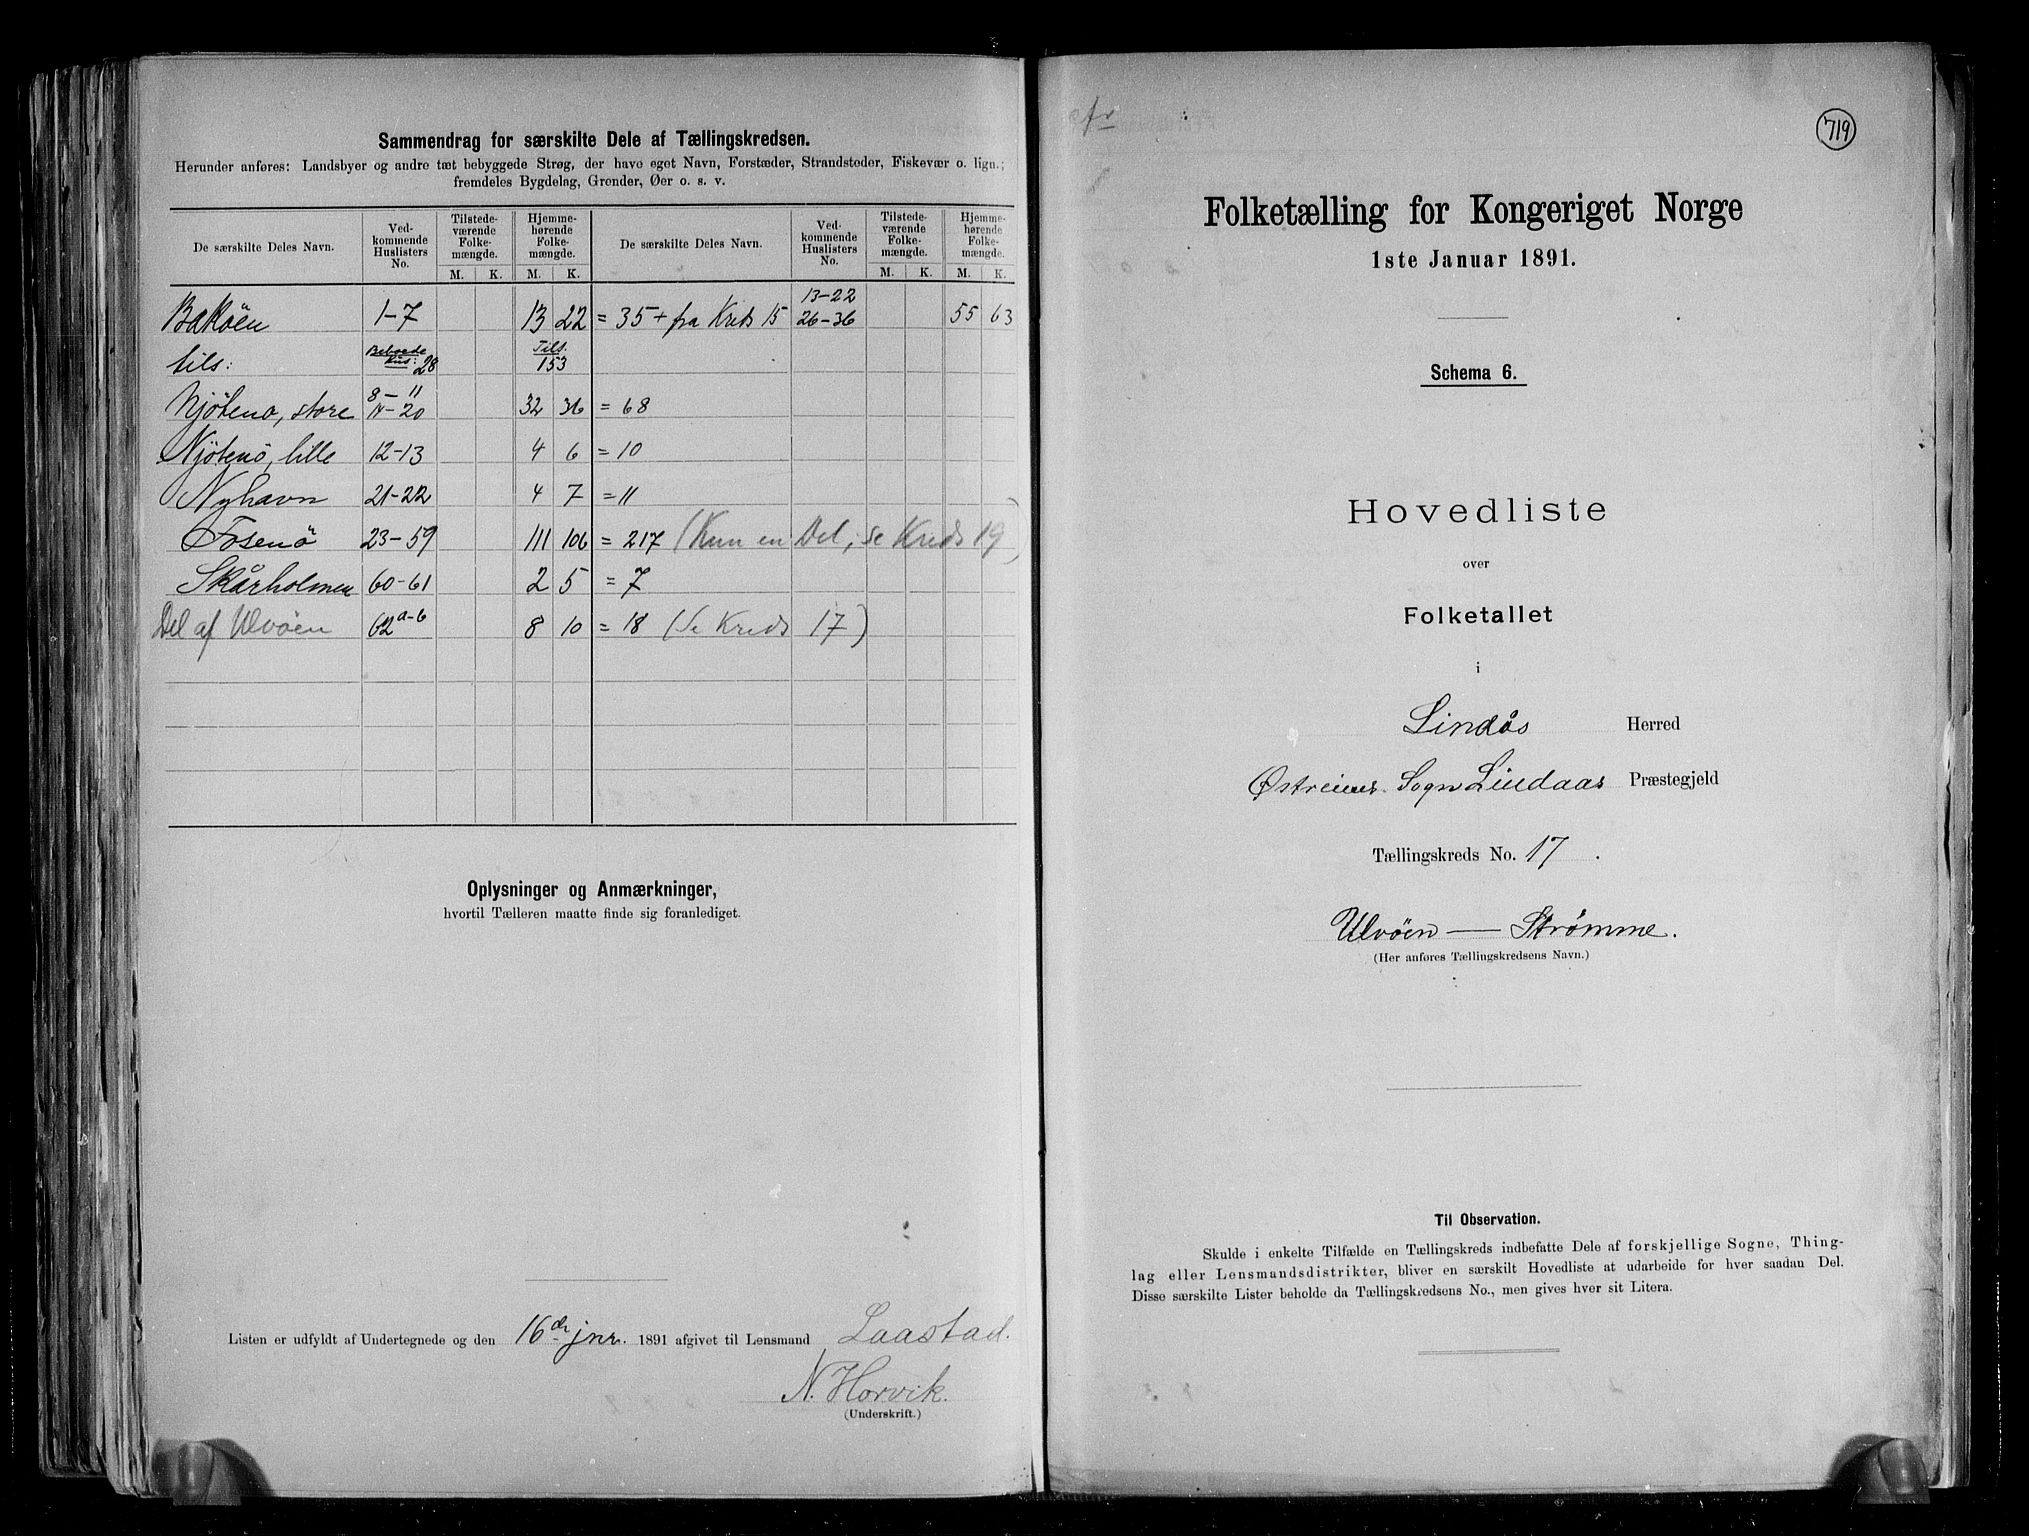 Sammendrag for særskilte Dele af Tællingskredsen.
Herunder anføres: Landsbyer og andre tæt bebyggede Strøg, der have eget Navn, Forstæder, Strandsteder, Fiskevær o. lign.;
fremdeles Bygdelag, Grender, Øer o. s. v.
De særskilte Deles Navn. Ved-kommende Huslisters No. Tilstede-værende Folke-mængde. Hjemme-hørende Folke-mængde. De særskilte Deles Navn. Ved-kommende Huslisters No. Tilstede-værende Folke-mængde. Hjemme-hørende Folke-mængde.
M. K. M. K. M. K. M. K.
Bakøen 1-7 13 22 = 35 + fra Kreds 15 13-22 26-36 55 63
tils: Beboede Hus: 28 Tils. 153
Njøtenø, store 8-11 14-20 32 36 = 68
Njøtenø, lille 12-13 4 6 = 10
Nyhavn 21-22 4 7 = 11
Fosenö 23-59 111 106 = 217 (Kun en Del, se Kreds 19)
Skårholmen 60-61 2 5 = 7
Del af Ulvöen 62 a-b 8 10 = 18 (Se Kreds 17)
Oplysninger og Anmærkninger,
hvortil Tælleren maatte finde sig foranlediget.
Listen er udfyldt af Undertegnede og den 16de jnr. 1891 afgivet til Lensmand Laastad.
N. Horvik.
(Underskrift.)
719
Folketælling for Kongeriget Norge
1ste Januar 1891.
Schema 6.
Hovedliste
over
Folketallet
i
Lindås Herred
Østreims Sogn Lindaas Præstegjeld
Tællingskreds No. 17.
Ulvöen — Strømme.
(Her anføres Tællingskredsens Navn.)
Til Observation.
Skulde i enkelte Tilfælde en Tællingskreds indbefatte Dele af forskjellige Sogne, Thing-
lag eller Lensmandsdistrikter, bliver en særskilt Hovedliste at udarbeide for hver saadan Del.
Disse særskilte Lister beholde da Tællingskredsens No., men gives hver sit Litera.